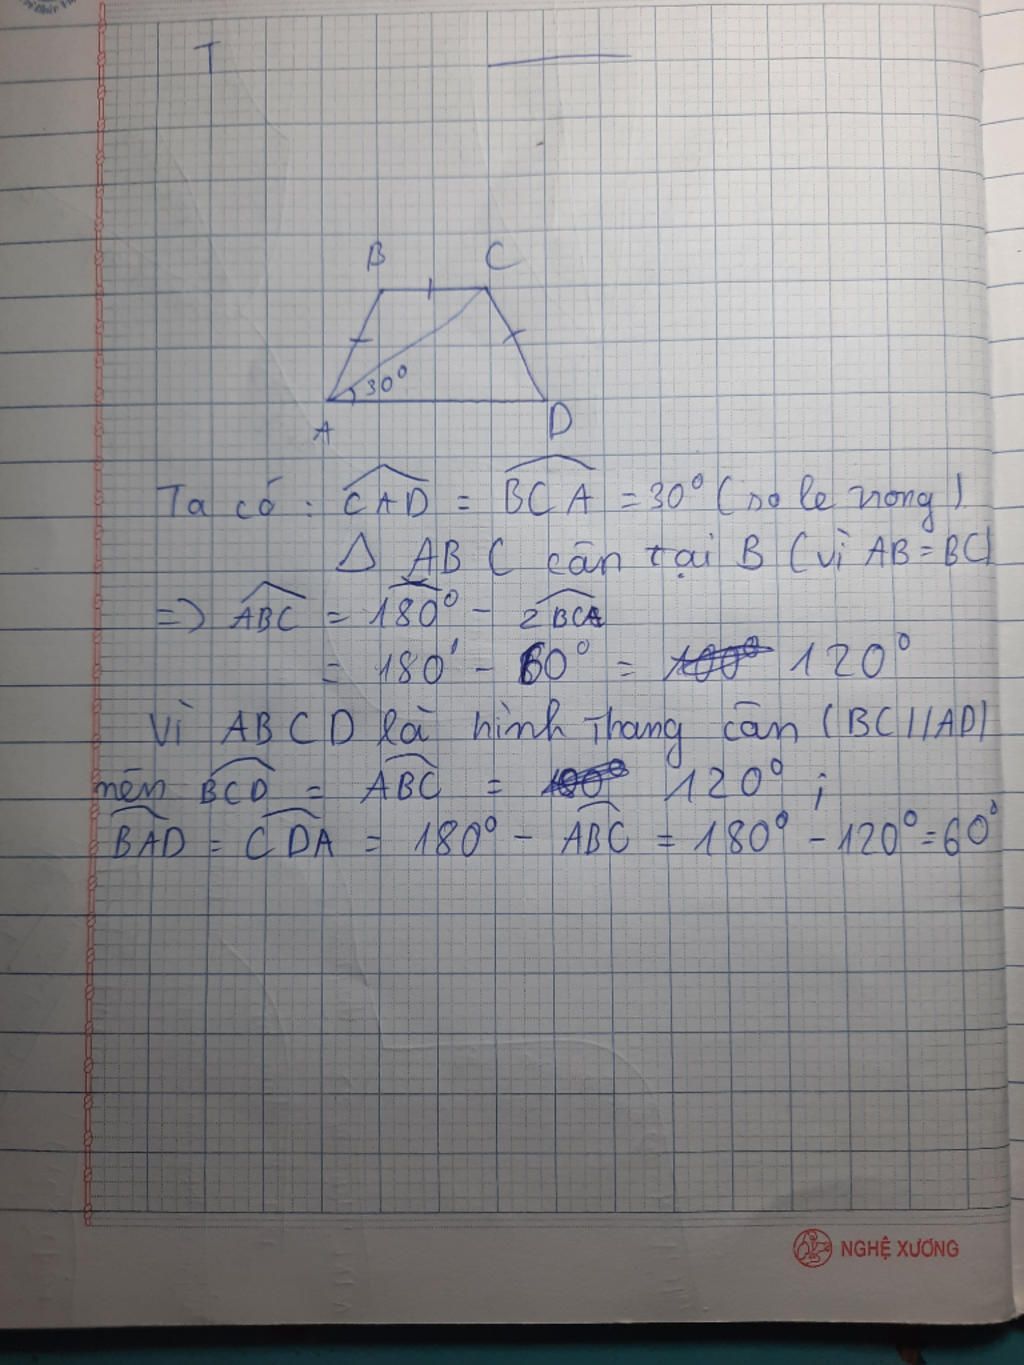 T
B C
30°
A D
Ta có : CAD = BCA = 30° (so le trong)
Δ ABC cân tại B (vì AB = BC)
=> ABC = 180° - 2BCA
= 180° - 60° = 120°
Vì ABCD là hình thang cân (BC//AD)
nên BCD = ABC = 120° ;
BAD = CDA = 180° - ABC = 180° - 120° = 60°
NGHỆ XƯƠNG